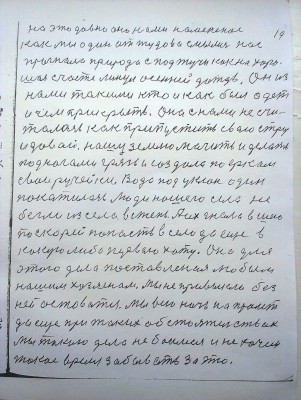 19
на это давно оно нами належаное
как мы один от тудова смылись нас
прогнало природа с под тучи как на хоро-
шая счасте линул осенний дождь. Он из
нами такими кто и как был одет
и чем прикрыть. Она с нами не счи-
талась как припустить свои стру
и довай. нашу землю мочить и делать
под ногами грязь и создала по еркам
свои ручейки. Вода под уклон один
покатилась Люди нашего села не
бегли из села в степь А их гнало в шию
поскорей попасть в село да еще в
какую либо целваю хату. Она для
этого дела поставленая мобыли
нашим хузяенам. Мы не привыкли без
ней оставатъ. Мы всю ночь на пролет
да еще при таких обстоятельствах
мы такую дела не боимся и не хочем
такое время забывать За это.